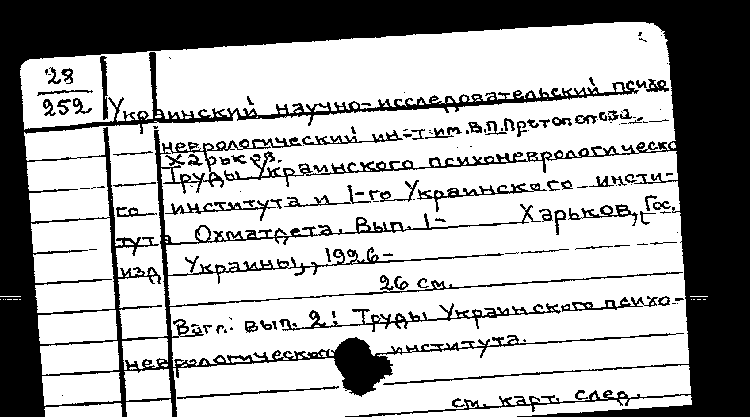 28
252
Украинский научно-исследовательский психо
неврологический ин-т им. В.П. Протопопова.
Харьков.
Труды Украинского психоневрологическо
го института и 1-го Украинского инсти-
тута Охматдета. Вып. 1- Харьков, [Гос.
изд Украины], 1926-
26 см.
Загл: вып. 2: Труды Украинского психо-
неврологического института.
см. карт. след.